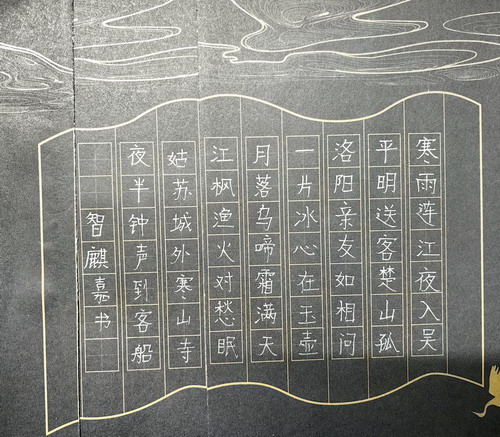 寒雨连江夜入吴
平明送客楚山孤
洛阳亲友如相问
一片冰心在玉壶
月落乌啼霜满天
江枫渔火对愁眠
姑苏城外寒山寺
夜半钟声到客船
智麒嘉书